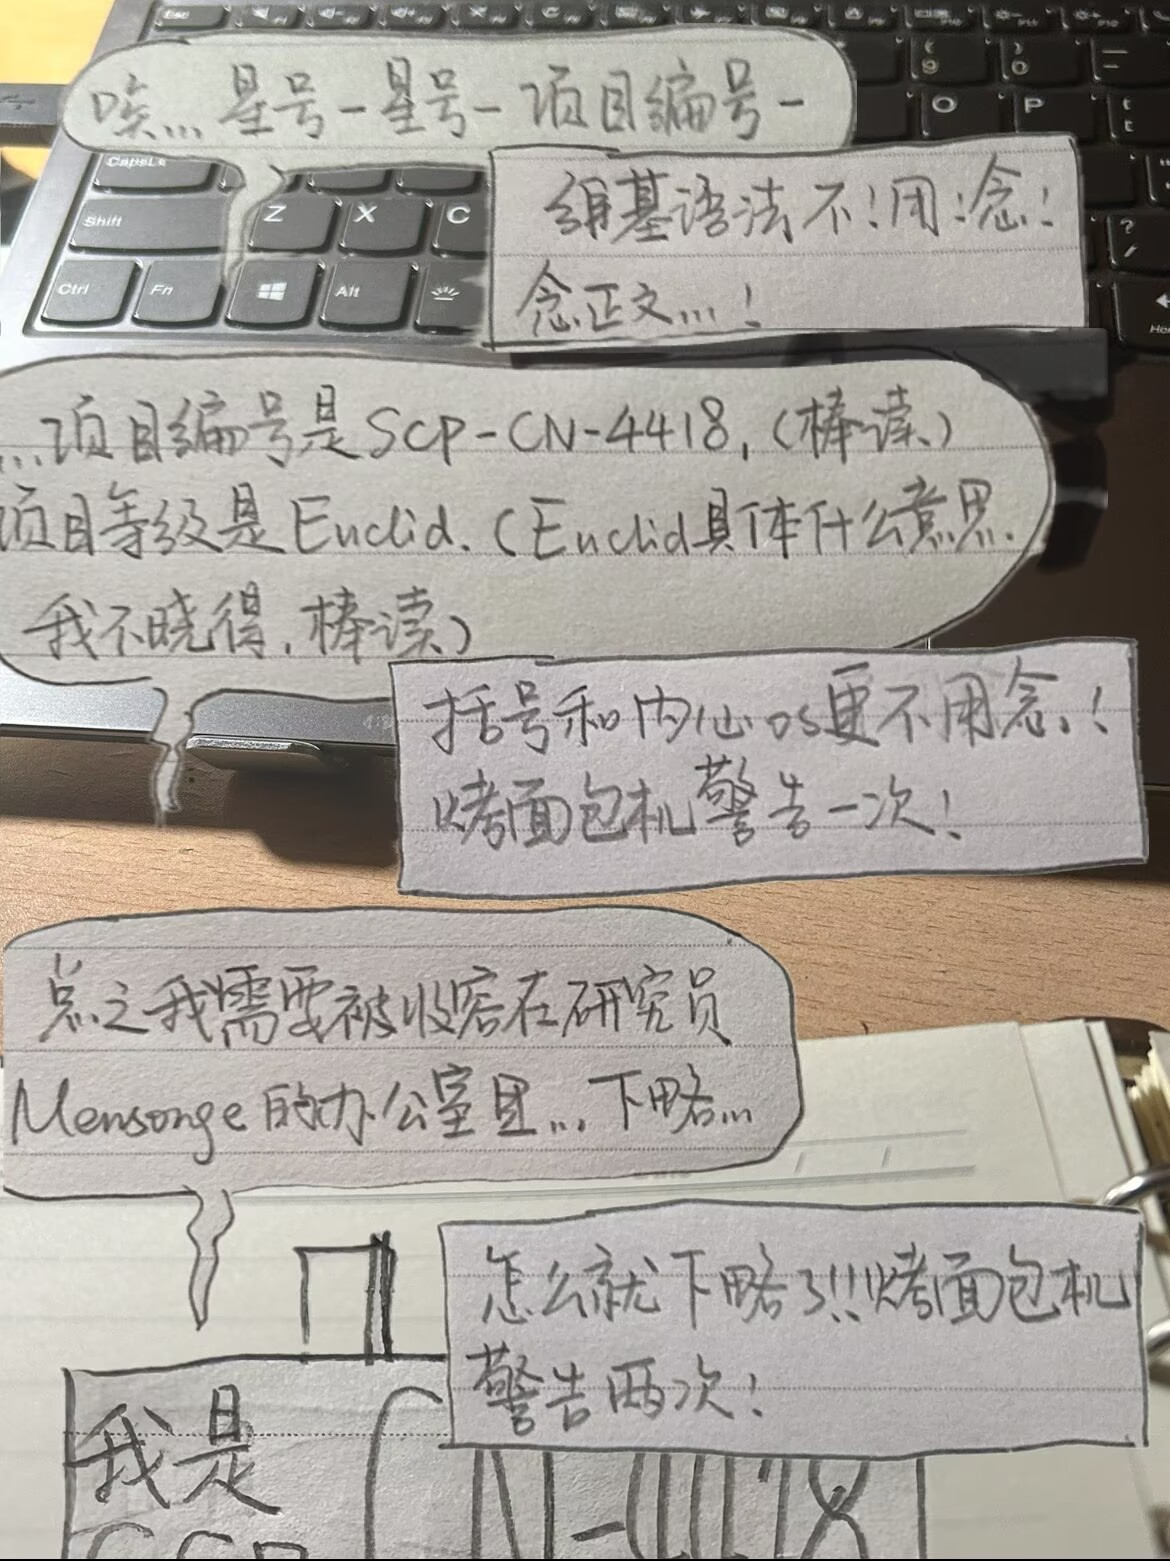 唉… 星号-星号-项目编号-
维基语法不！用！念！
念正文…！
…项目编号是SCP-CN-4418，（棒读）
项目等级是Euclid.（Euclid具体什么意思.
我不晓得，棒读）
括号和内心os更不用念！
烤面包机警告一次！
总之我需要被收容在研究员
Mensonge的办公室里… 下略…
怎么就下略了!!烤面包机
警告两次！
我是
SCP
CN-4418
Esc
CapsLk
Shift
Z
X
C
Ctrl
Fn
Alt
O
P